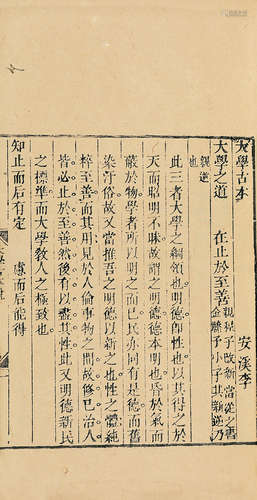 大學古本 安溪李
大學之道 在止於至善 親程子改新當從之書金縢予小子其新逆乃
親道也
此三者大學之綱領也明德即性也以其得之於
天而昭明不昧故謂之明德德本明也昏於氣而
蔽於物學者所以明之而已民亦同有是德而舊
染汙俗故又當推吾之明德以新之也性之體純
粹至善而其用見於人倫事物之間故修已治人
皆必止於至善然後有以盡其性此又明德新民
之標準而大學教人之極致也
知止而后有定 慮而后能得